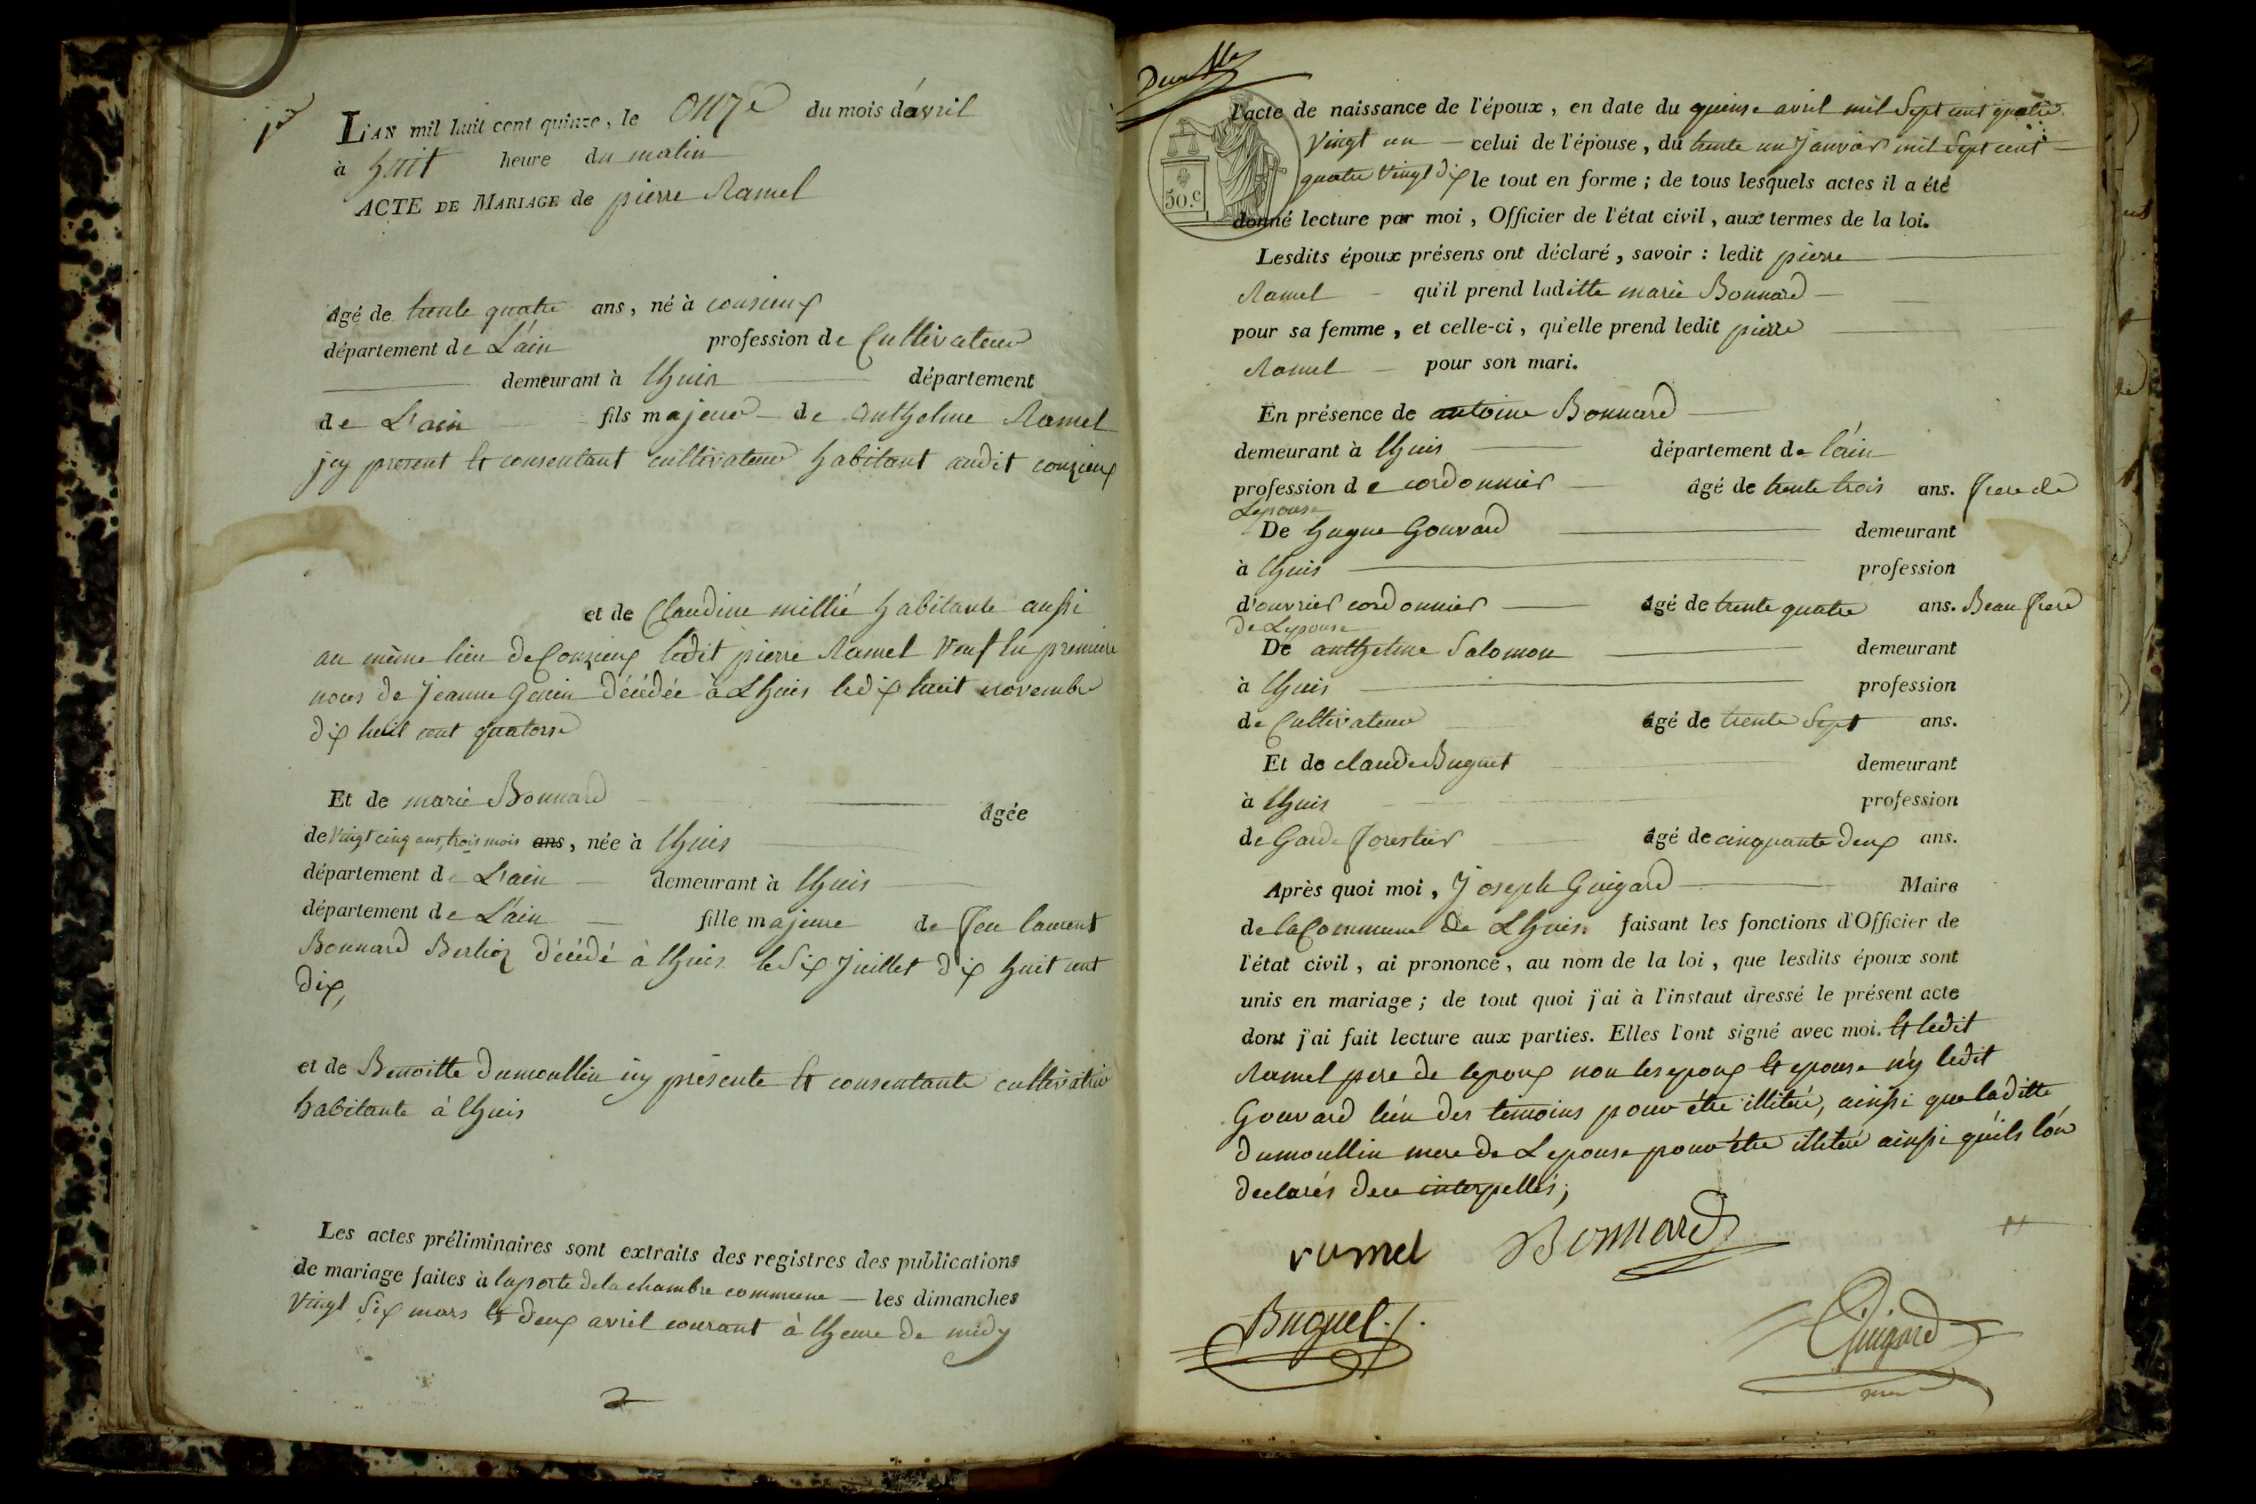 1er
L'AN mil huit cent quinze, le onze du mois d'avril
à huit heure du matin
ACTE DE MARIAGE de pierre Ramel
âgé de trente quatre ans, né à conzieux
département de L'ain profession de Cultivateur
demeurant à lhuis département
de L'ain fils majeur de anthelme Ramel
jcy present et consentant cultivateur habitant audit conzieux
et de Claudine millié habitante aussi
au même lieu de Conzieux ledit pierre Ramel veuf en premiere
noces de Jeanne décédée à Lhuis le dix huit novembre
dix huit cent quatorse
Et de marie Bonnard âgée
de vingt cinq ans, trois mois ans, née à lhuis
département de L'ain demeurant à lhuis
département de L'ain fille majeure de feu laurent
Bonnard Berlioz décédé à lhuis le six Juillet dix huit cent
dix,
et de Benoitte dumoullin icy présente et consentante cultivatrice
habitante à lhuis
Les actes préliminaires sont extraits des registres des publications
de mariage faites à la porte de la chambre commune les dimanches
vingt six mars et deux avril courant à lheure de midy
2
50.c
l'acte de naissance de l'époux, en date du quinse avril mil sept cent quatre
vingt un celui de l'épouse, du trente un Janvier mil sept cent
quatre vingt dix le tout en forme; de tous lesquels actes il a été
donné lecture par moi, Officier de l'état civil, aux termes de la loi.
Lesdits époux présens ont déclaré, savoir: ledit pierre
Ramel qu'il prend laditte marie Bonnard
pour sa femme, et celle-ci, qu'elle prend ledit pierre
Ramel pour son mari.
En présence de antoine Bonnard
demeurant à lhuis département de l'ain
profession de cordonnier âgé de trente trois ans. frere de
Lepouse
De hugue Gouvard demeurant
à lhuis profession
d'ouvrier cordonnier âgé de trente quatre ans. Beau frere
de Lepouse
De anthelme Salomon demeurant
à lhuis profession
de Cultivateur âgé de trente sept ans.
Et de claude Buguet demeurant
à lhuis profession
de Garde forestier âgé de cinquante deux ans.
Après quoi moi, Joseph Guigard Maire
de la Commune de Lhuis faisant les fonctions d'Officier de
l'état civil, ai prononcé, au nom de la loi, que lesdits époux sont
unis en mariage; de tout quoi j'ai à l'instaut dressé le présent acte
dont j'ai fait lecture aux parties. Elles l'ont signé avec moi. et ledit
Ramel pere de lepoux non les epoux et epouse n'y ledit
Gouvard l'un des temoins pour être illiteré, ainsi que laditte
dumoullin mere de Lepouse pour être illiteré ainsi qu'ils l'on
declarés de ce interpellés;
ramel Bonnard
Buguet
Guigard